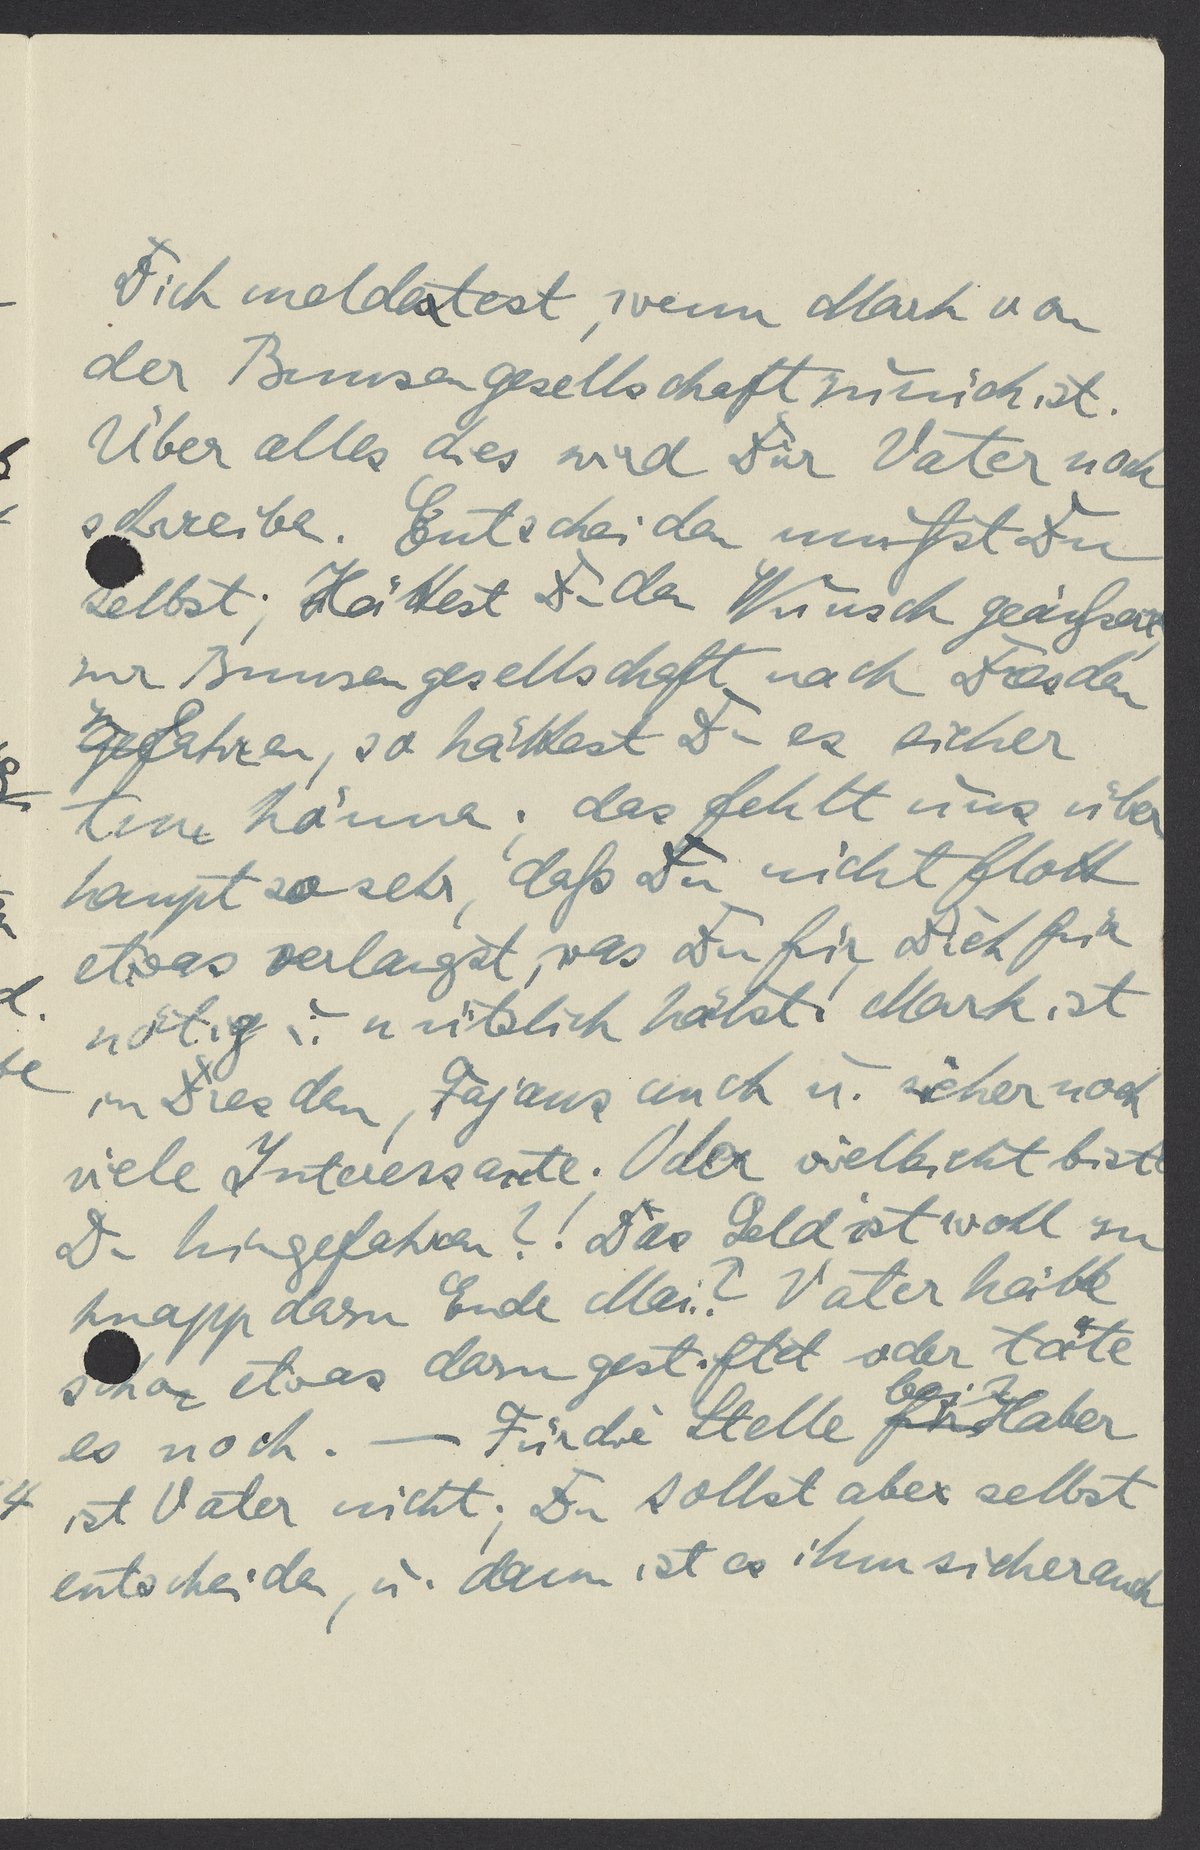 Dich meldetest, wenn Mark von
der Bunsengesellschaft zurück ist.
Über alles dies wird Dir Vater noch
schreiben. Entscheiden mußst Du
selbst; Hättest Du den Wunsch geäußert,
zur Bunsengesellschaft nach Dresden
zu fahren, so hättest Du es sicher
tun können; das fehlt uns über
haupt so sehr, daß Du nicht flott
etwas verlangst, was Du für Dich für
nötig u. nützlich hälst! Mark ist
in Dresden, Fajans auch u. sicher noch
viele Interessante. Oder vielleicht bist
Du hingefahren?! Das Geld ist wohl zu
knapp dazu Ende Mai? Vater hätte
schon etwas dazu gestiftet oder täte
es noch. — Für die Stelle bei Haber
ist Vater nicht; Du sollst aber selbst
entscheiden, u. dann ist es ihm sicher auch